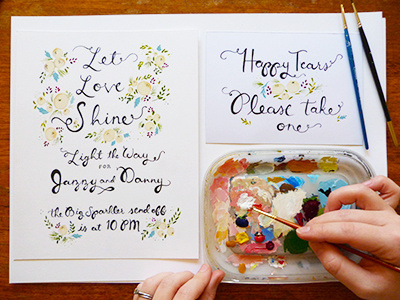 Let
Love
Shine
Light the Way
FOR
Jazzy and Danny
the Big Sparkler send off
is at 10 PM
Happy Tears
Please take
one